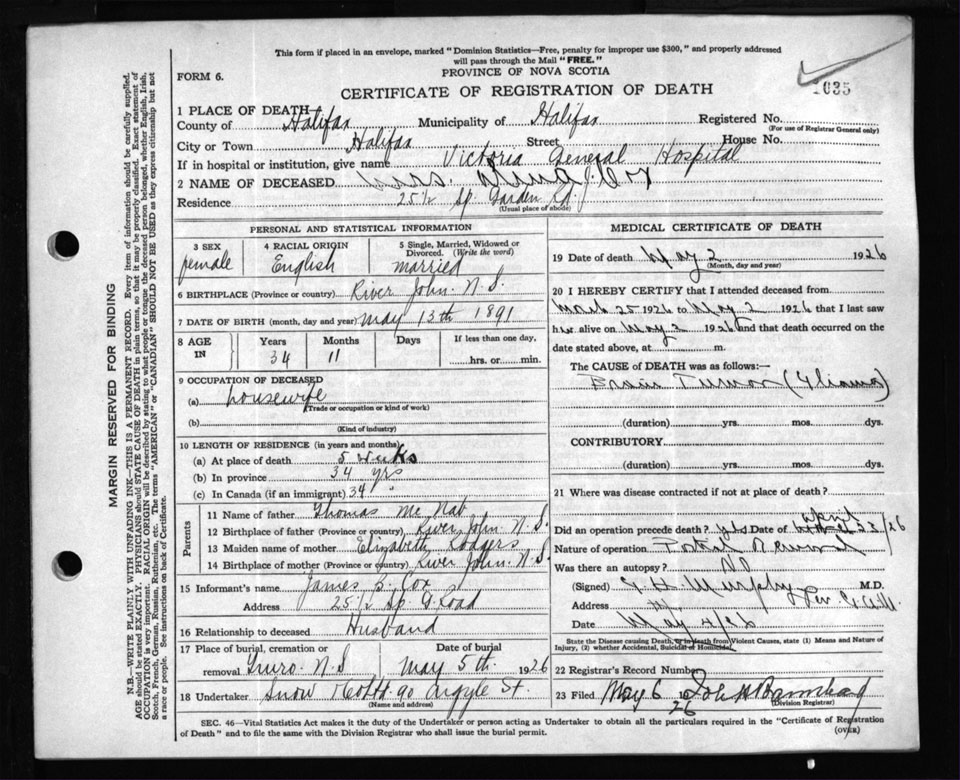 This form if placed in an envelope, marked "Dominion Statistics—Free, penalty for improper use $300," and properly addressed
will pass through the Mail "FREE."
FORM 6.
PROVINCE OF NOVA SCOTIA
1635
CERTIFICATE OF REGISTRATION OF DEATH
1 PLACE OF DEATH
County of Halifax Municipality of Halifax Registered No.
(For use of Registrar General only)
City or Town Halifax Street House No.
If in hospital or institution, give name Victoria General Hospital
2 NAME OF DECEASED Mrs. J. Cox
Residence 25½ Sp. Garden Rd.
(Usual place of abode)
PERSONAL AND STATISTICAL INFORMATION
3 SEX
female
4 RACIAL ORIGIN
English
5 Single, Married, Widowed or
Divorced. (Write the word)
married
6 BIRTHPLACE (Province or country) River John. N.S.
7 DATE OF BIRTH (month, day and year) May 13th 1891
8 AGE IN
Years Months Days If less than one day,
34 11 hrs. or min.
9 OCCUPATION OF DECEASED
(a) housewife
(Trade or occupation or kind of work)
(b)
(Kind of industry)
10 LENGTH OF RESIDENCE (in years and months)
(a) At place of death 5 weeks
(b) In province 34 yrs
(c) In Canada (if an immigrant) 34 "
Parents
11 Name of father Thomas Mc Nab
12 Birthplace of father (Province or country) River John. N.S.
13 Maiden name of mother Elizabeth Rodgers
14 Birthplace of mother (Province or country) River John. N.S
15 Informant's name James Cox
Address 25½ Sp. G. Road
16 Relationship to deceased Husband
17 Place of burial, cremation or Date of burial
removal Truro. N.S May 5th. 1926
18 Undertaker Snow 90 Argyle St.
(Name and address)
MEDICAL CERTIFICATE OF DEATH
19 Date of death May 2 1926
(Month, day and year)
20 I HEREBY CERTIFY that I attended deceased from
March 25 1926 to May 2 1926 that I last saw
her alive on May 2 1926 and that death occurred on the
date stated above, at m.
The CAUSE of DEATH was as follows:—
Brain Tumor (Glioma)
(duration) yrs. mos. dys.
CONTRIBUTORY
(duration) yrs. mos. dys.
21 Where was disease contracted if not at place of death?
Did an operation precede death? yes Date of April 23/26
Nature of operation Removal
Was there an autopsy? No
(Signed) G. H. Murphy M.D.
Address
Date May 4/26
State the Disease causing Death, or in death from Violent Causes, state (1) Means and Nature of
Injury, (2) whether Accidental, Suicidal or Homicidal.
22 Registrar's Record Number
23 Filed May 6 1926
(Division Registrar)
SEC. 46—Vital Statistics Act makes it the duty of the Undertaker or person acting as Undertaker to obtain all the particulars required in the "Certificate of Registration
of Death" and to file the same with the Division Registrar who shall issue the burial permit.
(OVER)
MARGIN RESERVED FOR BINDING
N.B.—WRITE PLAINLY WITH UNFADING INK—THIS IS A PERMANENT RECORD. Every item of information should be carefully supplied.
AGE should be stated EXACTLY. PHYSICIANS should STATE CAUSE OF DEATH in plain terms, so that it may be properly classified. Exact statement of
OCCUPATION is very important. RACIAL ORIGIN will be described by stating to what people or tongue the deceased person belonged, whether English, Irish,
Scotch, French, German, Russian, Ruthenian, etc. The terms "AMERICAN" or "CANADIAN" SHOULD NOT BE USED as they express citizenship but not
a race or people. See instructions on back of Certificate.